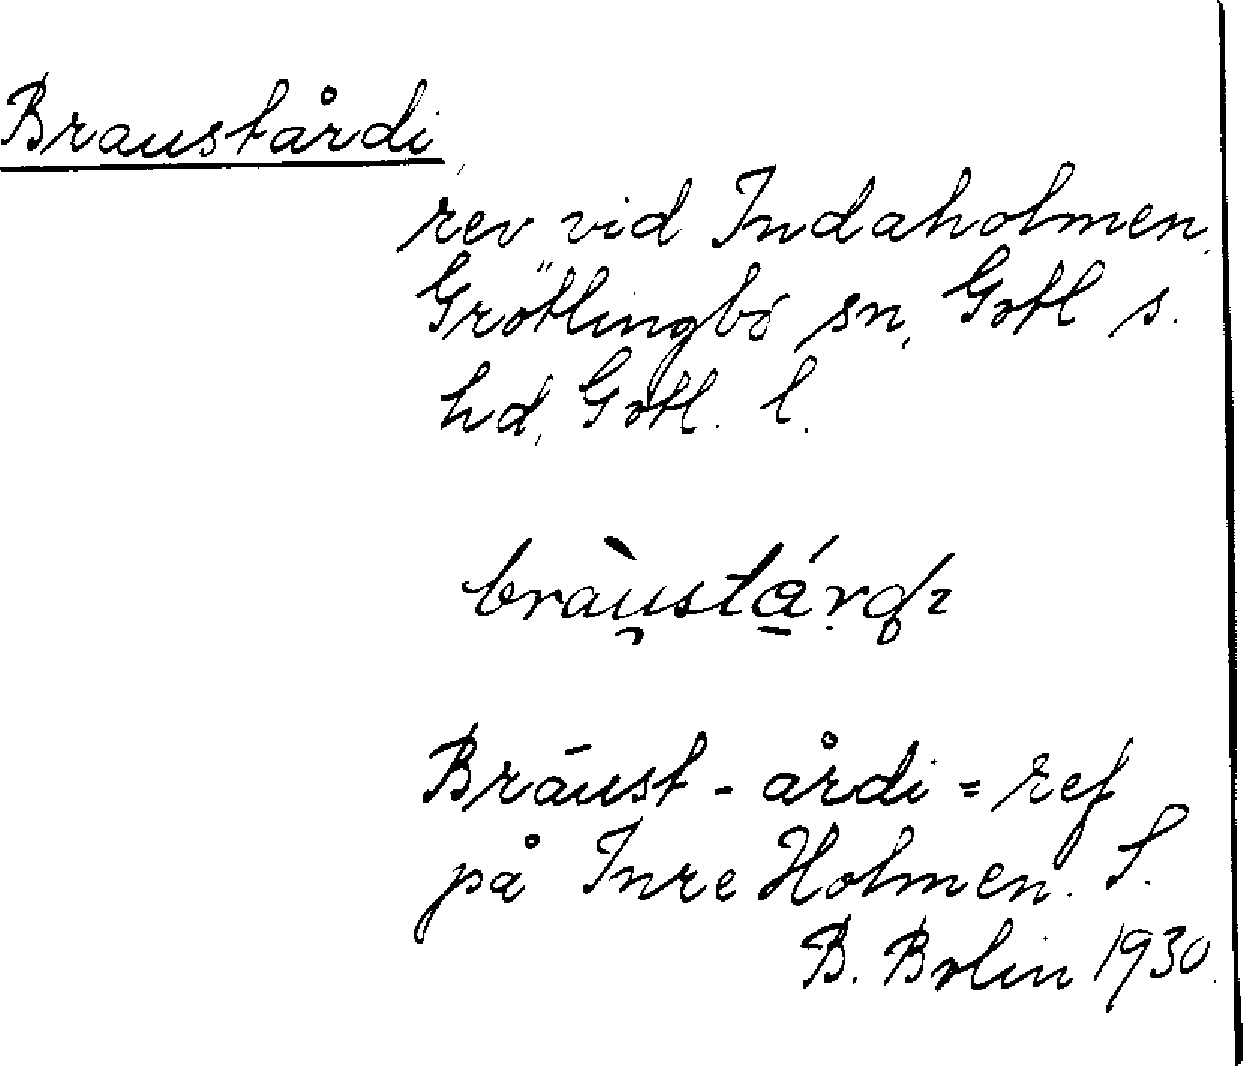 Braustårdi,
rev vid Indaholmen,
Grötlingbo sn, Gotl s.
hd, Gotl. l.
Brāust-årdi = ref
på Inre Holmen. S.
B. Bolin 1930.